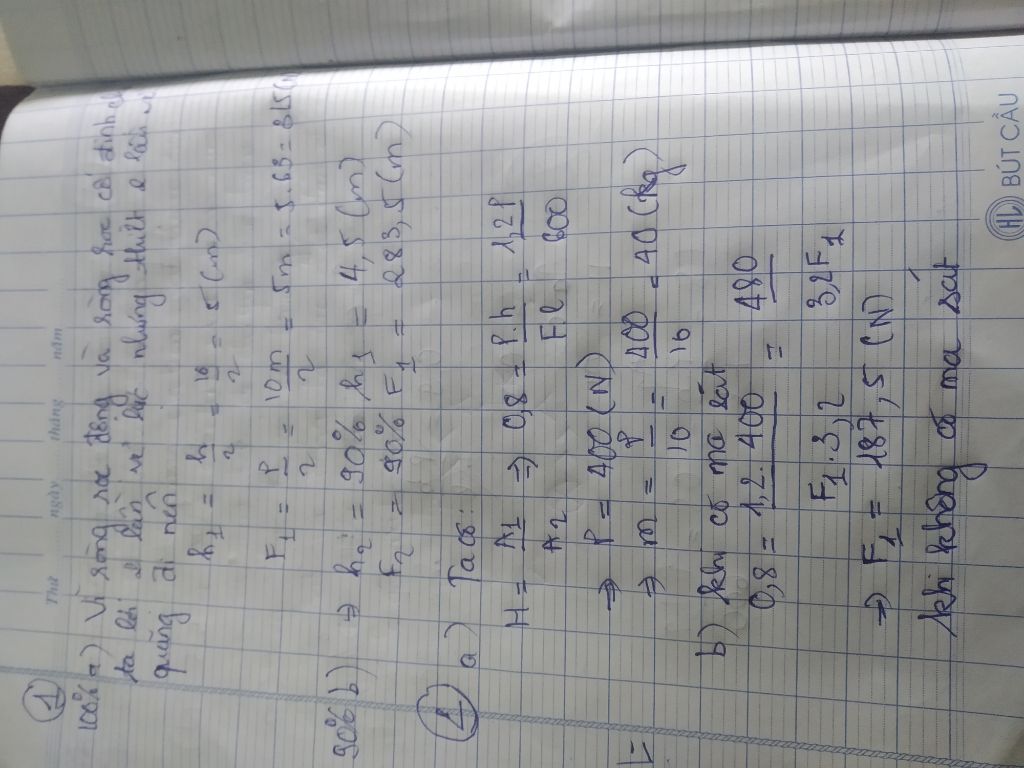 Thứ ngày tháng năm
①
100% a) Vì ròng rọc động và ròng rọc cố định
ta lợi 2 lần về lực nhưng thiệt 2 lần về
quãng đi nên
h₁ = h/2 = 10/2 = 5 (m)
F₁ = P/2 = 10m/2 = 5m = 5.63 = 315 (N
90% b) ⇒ h₂ = 90% h₁ = 4,5 (m)
F₂ = 90% F₁ = 283,5 (m)
① a) Ta có:
H = A₁/A₂ ⇒ 0,8 = P.h/F.l = 1,2P/600
⇒ P = 400 (N)
⇒ m = P/10 = 400/10 = 40 (kg)
b) khi có ma sát
0,8 = 1,2.400/F₁.3,2 = 480/3,2F₁
⇒ F₁ = 187,5 (N)
khi không có ma sát
BÚT CẦU